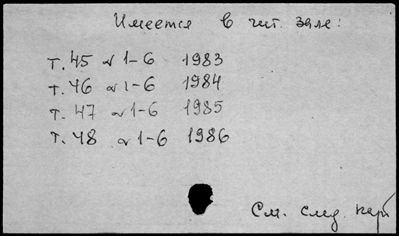 Имеется в чит. зале:
т. 45 № 1-6 1983
т. 46 № 1-6 1984
т. 47 № 1-6 1985
т. 48 № 1-6 1986
См. след.